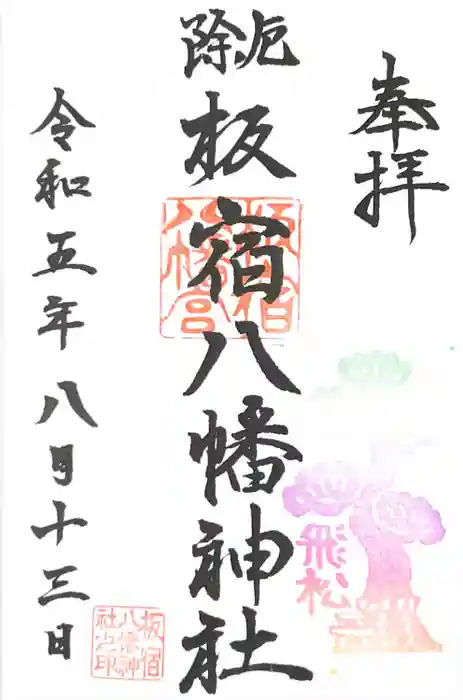 奉拝
厄除
板宿八幡神社
令和五年八月十三日
板宿八幡宮
飛松
板宿八幡神社之印